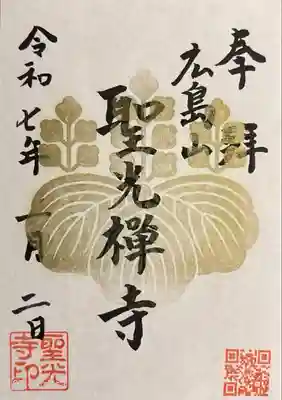 奉拝
広島山
聖光禅寺
令和七年 一月 二日
聖光
寺印